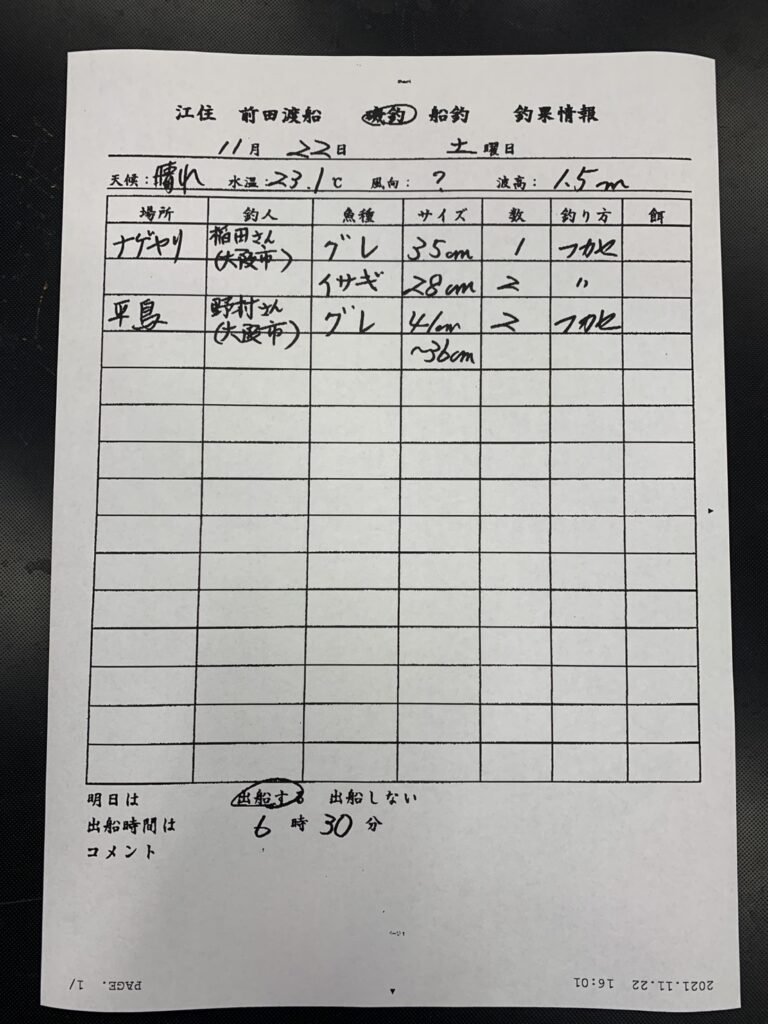 江住 前田渡船 磯釣 船釣 釣果情報
11月 22日 土曜日
天候：晴れ 水温：23.1℃ 風向：? 波高：1.5m
場所 釣人 魚種 サイズ 数 釣り方 餌
ナゲヤリ 稲田さん(大阪市) グレ 35cm 1 フカセ
イサギ 28cm 2 〃
平島 野村さん(大阪市) グレ 41cm 2 フカセ
~36cm
明日は 出船する 出船しない
出船時間は 6時30分
コメント
2021.11.22 16:01 PAGE. 1/